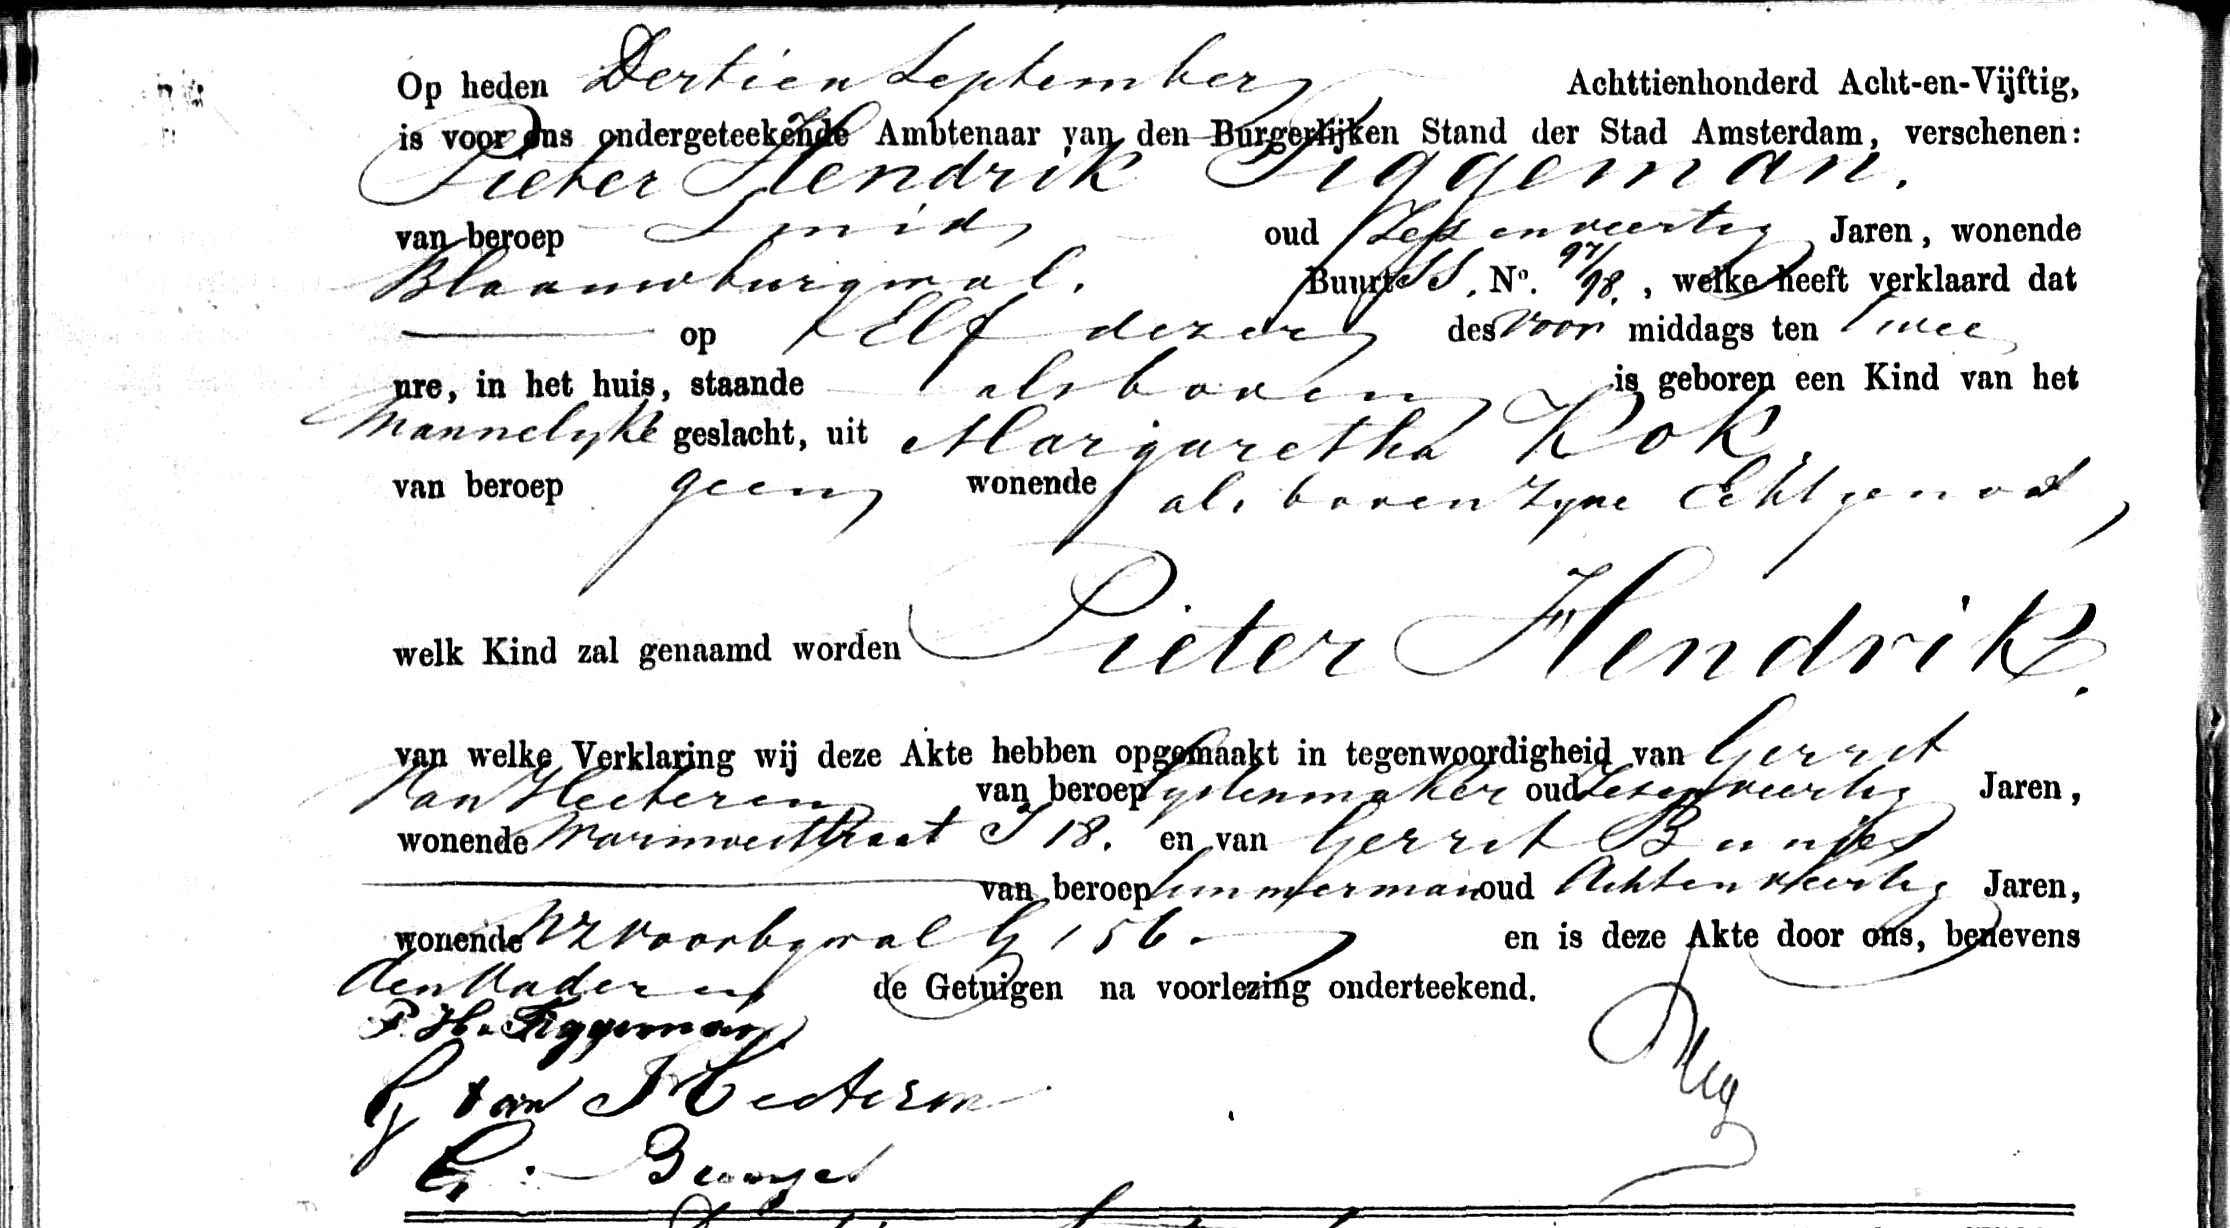 Op heden Dertien September Achttienhonderd Acht-en-Vijftig,
is voor ons ondergeteekende Ambtenaar van den Burgerlijken Stand der Stad Amsterdam, verschenen:
Pieter Hendrik Figgeman.
van beroep Smid oud Zesenveertig Jaren, wonende
Blaauwburgwal. Buurt SS. No. 97/98., welke heeft verklaard dat
op Elf dezer des voor middags ten twee
ure, in het huis, staande als boven is geboren een Kind van het
Mannelyke geslacht, uit Margaretha Kok.
van beroep geen wonende als boven zyne Echtgenoot,
welk Kind zal genaamd worden Pieter Hendrik.
van welke Verklaring wij deze Akte hebben opgemaakt in tegenwoordigheid van Gerret
van Heeteren van beroep Lystenmaker oud Zesenveertig Jaren,
wonende Warmoesstraat J 18. en van Gerrit Bunjes
van beroep timmerman oud Achtenveertig Jaren,
wonende NZ voorbgwal G 156. en is deze Akte door ons, benevens
den Vader en de Getuigen na voorlezing onderteekend.
P. H. Figgeman
G van Heeteren
G. Bunjes